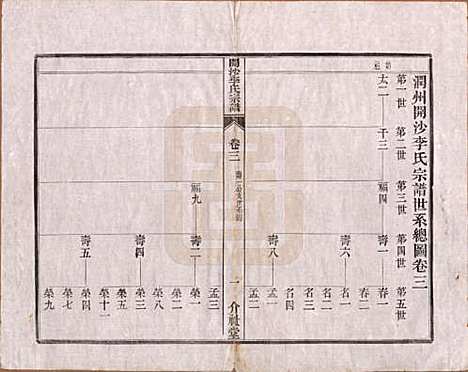 潤州開沙李氏宗譜世系總圖卷三
第一世 第二世 第三世 第四世 第五世
始祖
太二 千三 福四 壽一 春一
春二
壽六 名一
名二
名四
壽八 孟一
孟二
開沙李氏宗譜
卷三
一 介祉堂
孟三
福九 壽二 榮一
榮二
榮八
壽四 榮三
榮十一
壽五 榮四
榮七
榮九